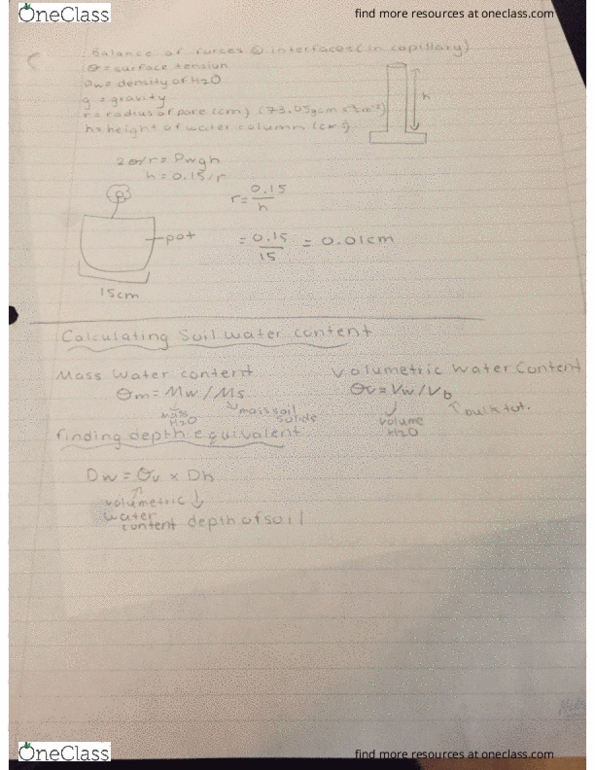 OneClass
find more resources at oneclass.com
Balance of forces @ interfaces (in capillary)
σ = surface tension
Pw = density of H2O
g = gravity
r = radius of pore (cm) (73.05gcm s-2cm-2)
h = height of water column (cm)
h
2σ/r = Pwgh
h = 0.15/r
r = 0.15/h
pot
= 0.15/15 = 0.01cm
15cm
Calculating Soil water content
Mass Water content
Θm = Mw/Ms
mass H2O
mass soil solids
Volumetric Water Content
Θv = Vw/Vb
volume H2O
bulk tot.
finding depth equivalent
Dw = Θv x Dh
volumetric
water
content depth of soil
OneClass
find more resources at oneclass.com